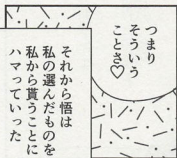 つまり
そういう
ことさ♡
それから悟は
私の選んだものを
私から貰うことに
ハマっていった